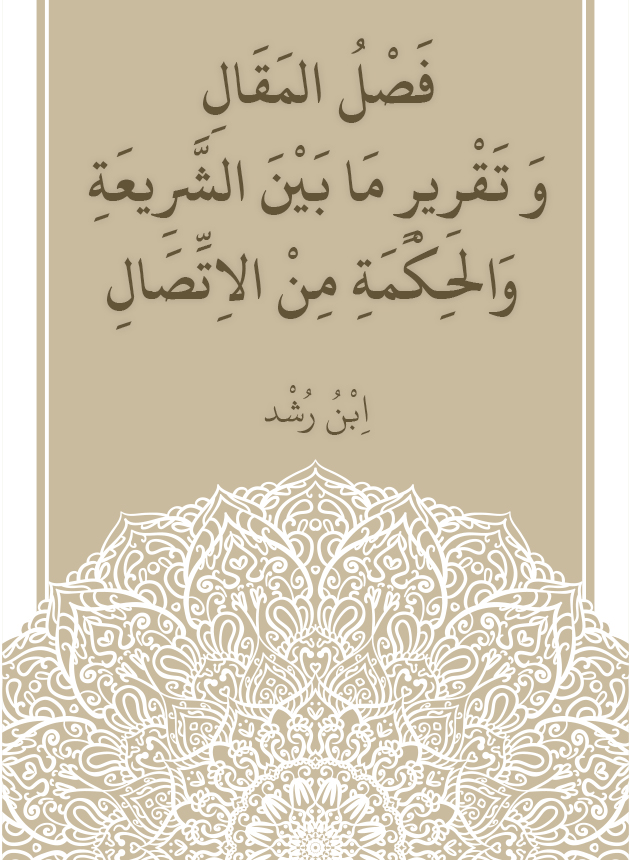 فَصْلُ المَقَالِ
وَ تَقْرير مَا بَيْنَ الشَّريعَةِ
وَالحَِكْمَةِ مِنْ الاِتِّصَالِ
اِبْنُ رُشْد